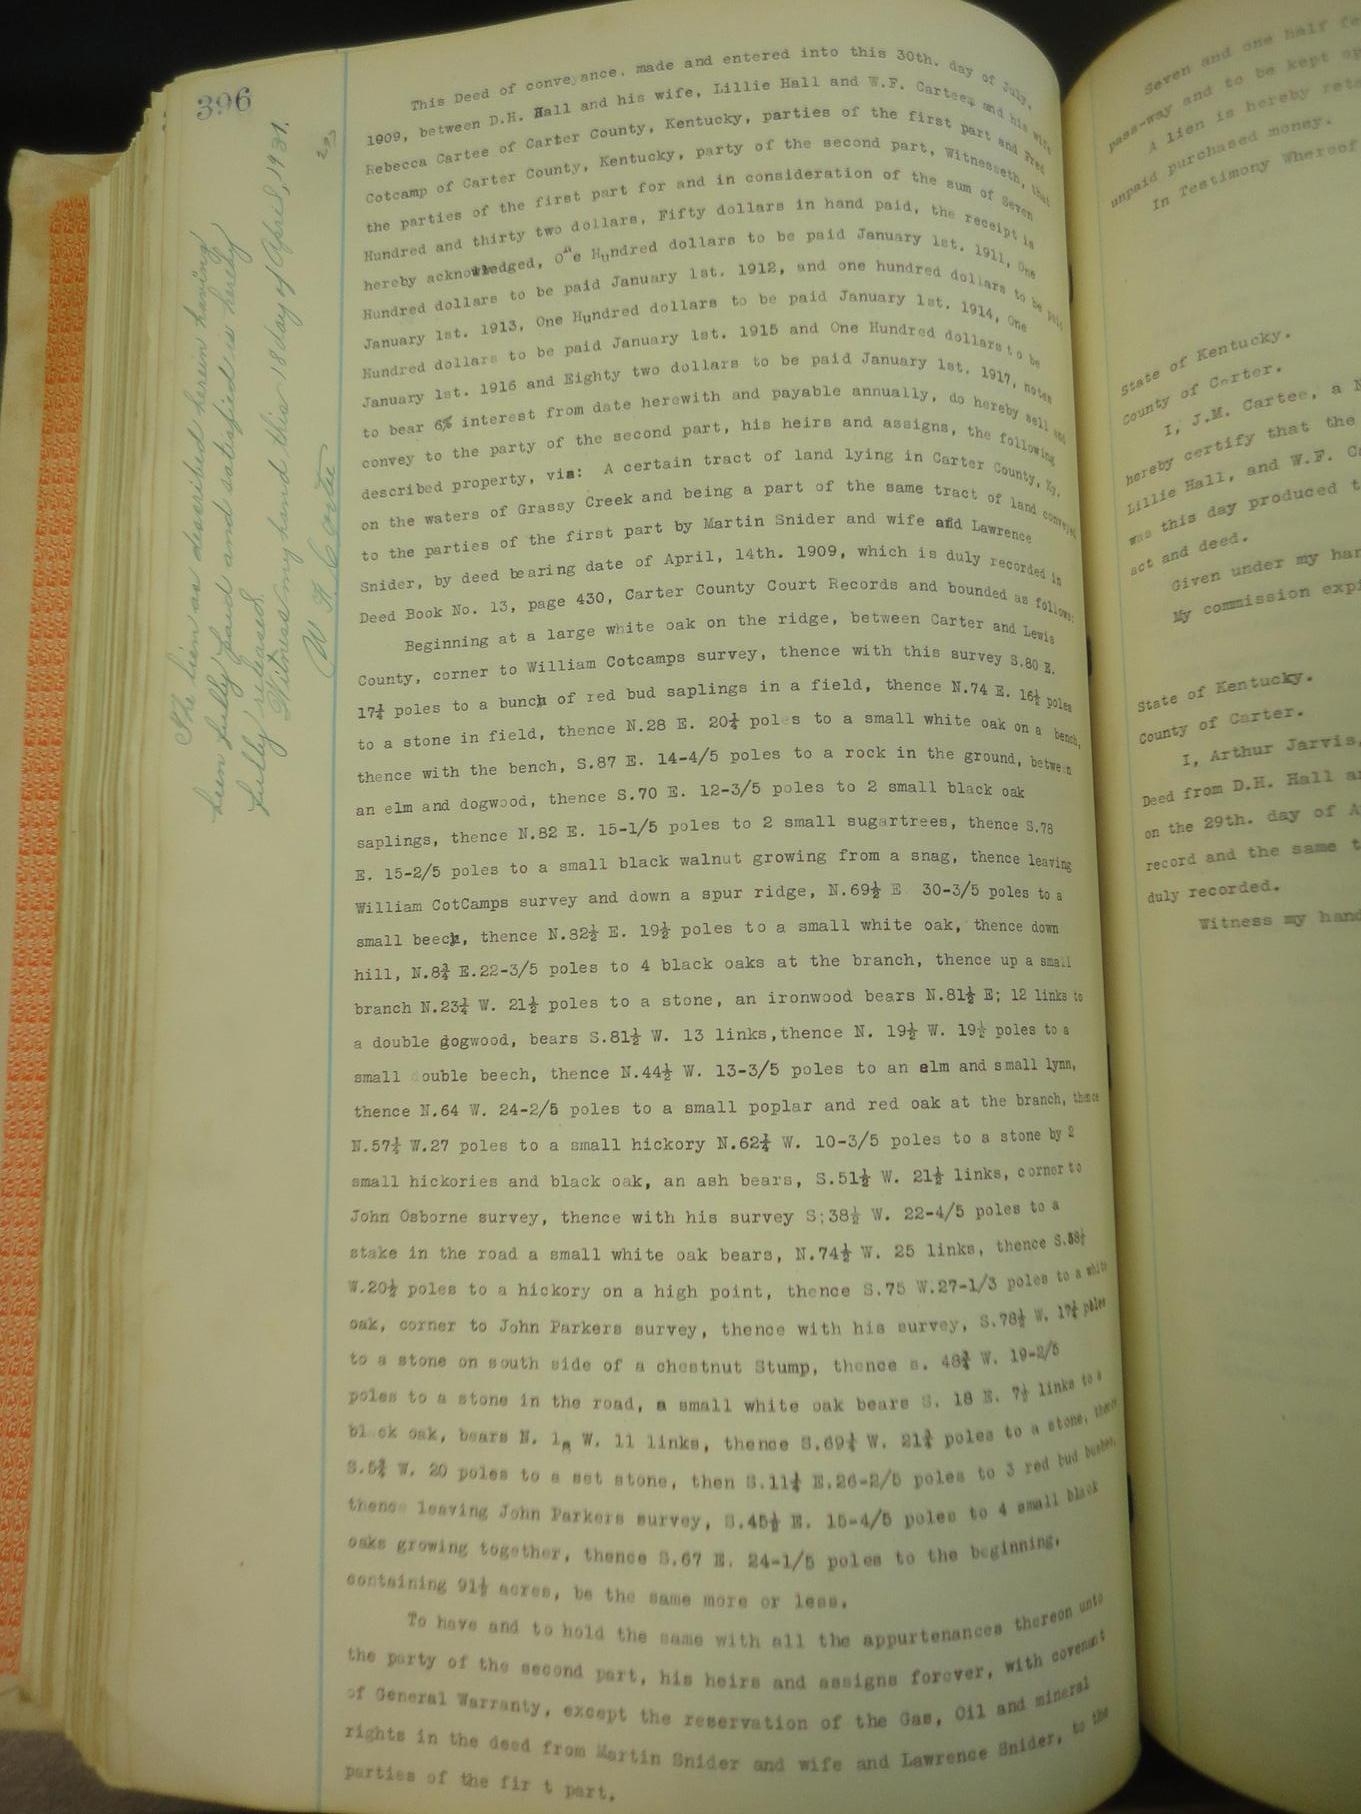 396
This Deed of conveyance, made and entered into this 30th. day of July,
1909, between D.H. Hall and his wife, Lillie Hall and W.F. Cartee, and his wife
Rebecca Cartee of Carter County, Kentucky, parties of the first part and Fred
Cotcamp of Carter County, Kentucky, party of the second part, Witnesseth, that
the parties of the first part for and in consideration of the sum of Seven
Hundred and thirty two dollars, Fifty dollars in hand paid, the receipt is
hereby acknowledged, One Hundred dollars to be paid January 1st. 1911, One
Hundred dollars to be paid January 1st. 1912, and one hundred dollars to be paid
January 1st. 1913, One Hundred dollars to be paid January 1st. 1914, One
Hundred dollars to be paid January 1st. 1915 and One Hundred dollars to be
January 1st. 1916 and Eighty two dollars to be paid January 1st. 1917, notes
to bear 6% interest from date herewith and payable annually, do hereby sell and
convey to the party of the second part, his heirs and assigns, the following
described property, via: A certain tract of land lying in Carter County, Ky.
on the waters of Grassy Creek and being a part of the same tract of land conveyed
to the parties of the first part by Martin Snider and wife and Lawrence
Snider, by deed bearing date of April, 14th. 1909, which is duly recorded in
Deed Book No. 13, page 430, Carter County Court Records and bounded as follows:
Beginning at a large white oak on the ridge, between Carter and Lewis
County, corner to William Cotcamps survey, thence with this survey S.80 E.
17¾ poles to a bunch of red bud saplings in a field, thence N.74 E. 16½ poles
to a stone in field, thence N.28 E. 20¾ poles to a small white oak on a bench,
thence with the bench, S.87 E. 14-4/5 poles to a rock in the ground, between
an elm and dogwood, thence S.70 E. 12-3/5 poles to 2 small black oak
saplings, thence N.82 E. 15-1/5 poles to 2 small sugartrees, thence S.78
E. 15-2/5 poles to a small black walnut growing from a snag, thence leaving
William CotCamps survey and down a spur ridge, N.69½ E 30-3/5 poles to a
small beech, thence N.82½ E. 19½ poles to a small white oak, thence down
hill, N.8¾ E.22-3/5 poles to 4 black oaks at the branch, thence up a small
branch N.23¾ W. 21½ poles to a stone, an ironwood bears N.81½ E; 12 links to
a double dogwood, bears S.81½ W. 13 links,thence N. 19½ W. 19½ poles to a
small ouble beech, thence N.44½ W. 13-3/5 poles to an elm and small lynn,
thence N.64 W. 24-2/5 poles to a small poplar and red oak at the branch, thence
N.57¾ W.27 poles to a small hickory N.62¾ W. 10-3/5 poles to a stone by 2
small hickories and black oak, an ash bears, S.51½ W. 21½ links, corner to
John Osborne survey, thence with his survey S;38½ W. 22-4/5 poles to a
stake in the road a small white oak bears, N.74½ W. 25 links, thence S.58½
W.20½ poles to a hickory on a high point, thence S.75 W.27-1/3 poles to a white
oak, corner to John Parkers survey, thence with his survey, S.78½ W. 17¾ poles
to a stone on south side of a chestnut Stump, thence s. 48¾ W. 19-2/5
poles to a stone in the road, a small white oak bears S. 18 E. 7½ links to a
bl ck oak, bears N. 1 W. 11 links, thence S.69¼ W. 21¾ poles to a stone, thence
S.5¾ W. 20 poles to a set stone, then S.11¼ E.26-2/5 poles to 3 red bud bushes,
thence leaving John Parkers survey, S.45½ E. 15-4/5 poles to 4 small black
oaks growing together, thence S.67 E. 24-1/5 poles to the beginning,
containing 91½ acres, be the same more or less.
To have and to hold the same with all the appurtenances thereon unto
the party of the second part, his heirs and assigns forever, with covenant
of General Warranty, except the reservation of the Gas, Oil and mineral
rights in the deed from Martin Snider and wife and Lawrence Snider, to the
parties of the fir t part.
The lien as described herein having
been fully paid and satisfied is hereby
fully released.
Witness my hand this 18 day of April, 1931.
Seven and one half fe
pass-way and to be kept op
A lien is hereby reta
unpaid purchased money.
In Testimony Whereof
State of Kentucky.
County of Carter.
I, J.M. Cartee, a N
hereby certify that the
Lillie Hall, and W.F. Ca
was this day produced t
act and deed.
Given under my han
My commission expi
State of Kentucky.
County of Carter.
I, Arthur Jarvis,
Deed from D.H. Hall an
on the 29th. day of A
record and the same t
duly recorded.
Witness my hand